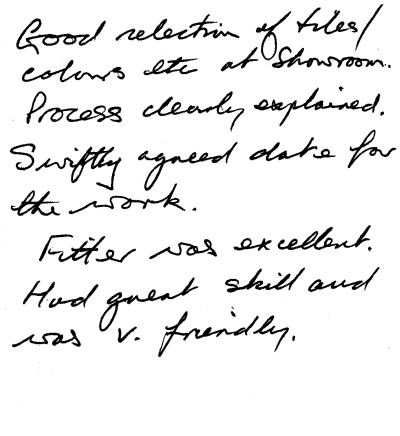 Good selection of tiles/
colours etc at Showroom.
Process clearly explained.
Swiftly agreed date for
the work.
Fitter was excellent.
Had great skill and
was v. friendly.